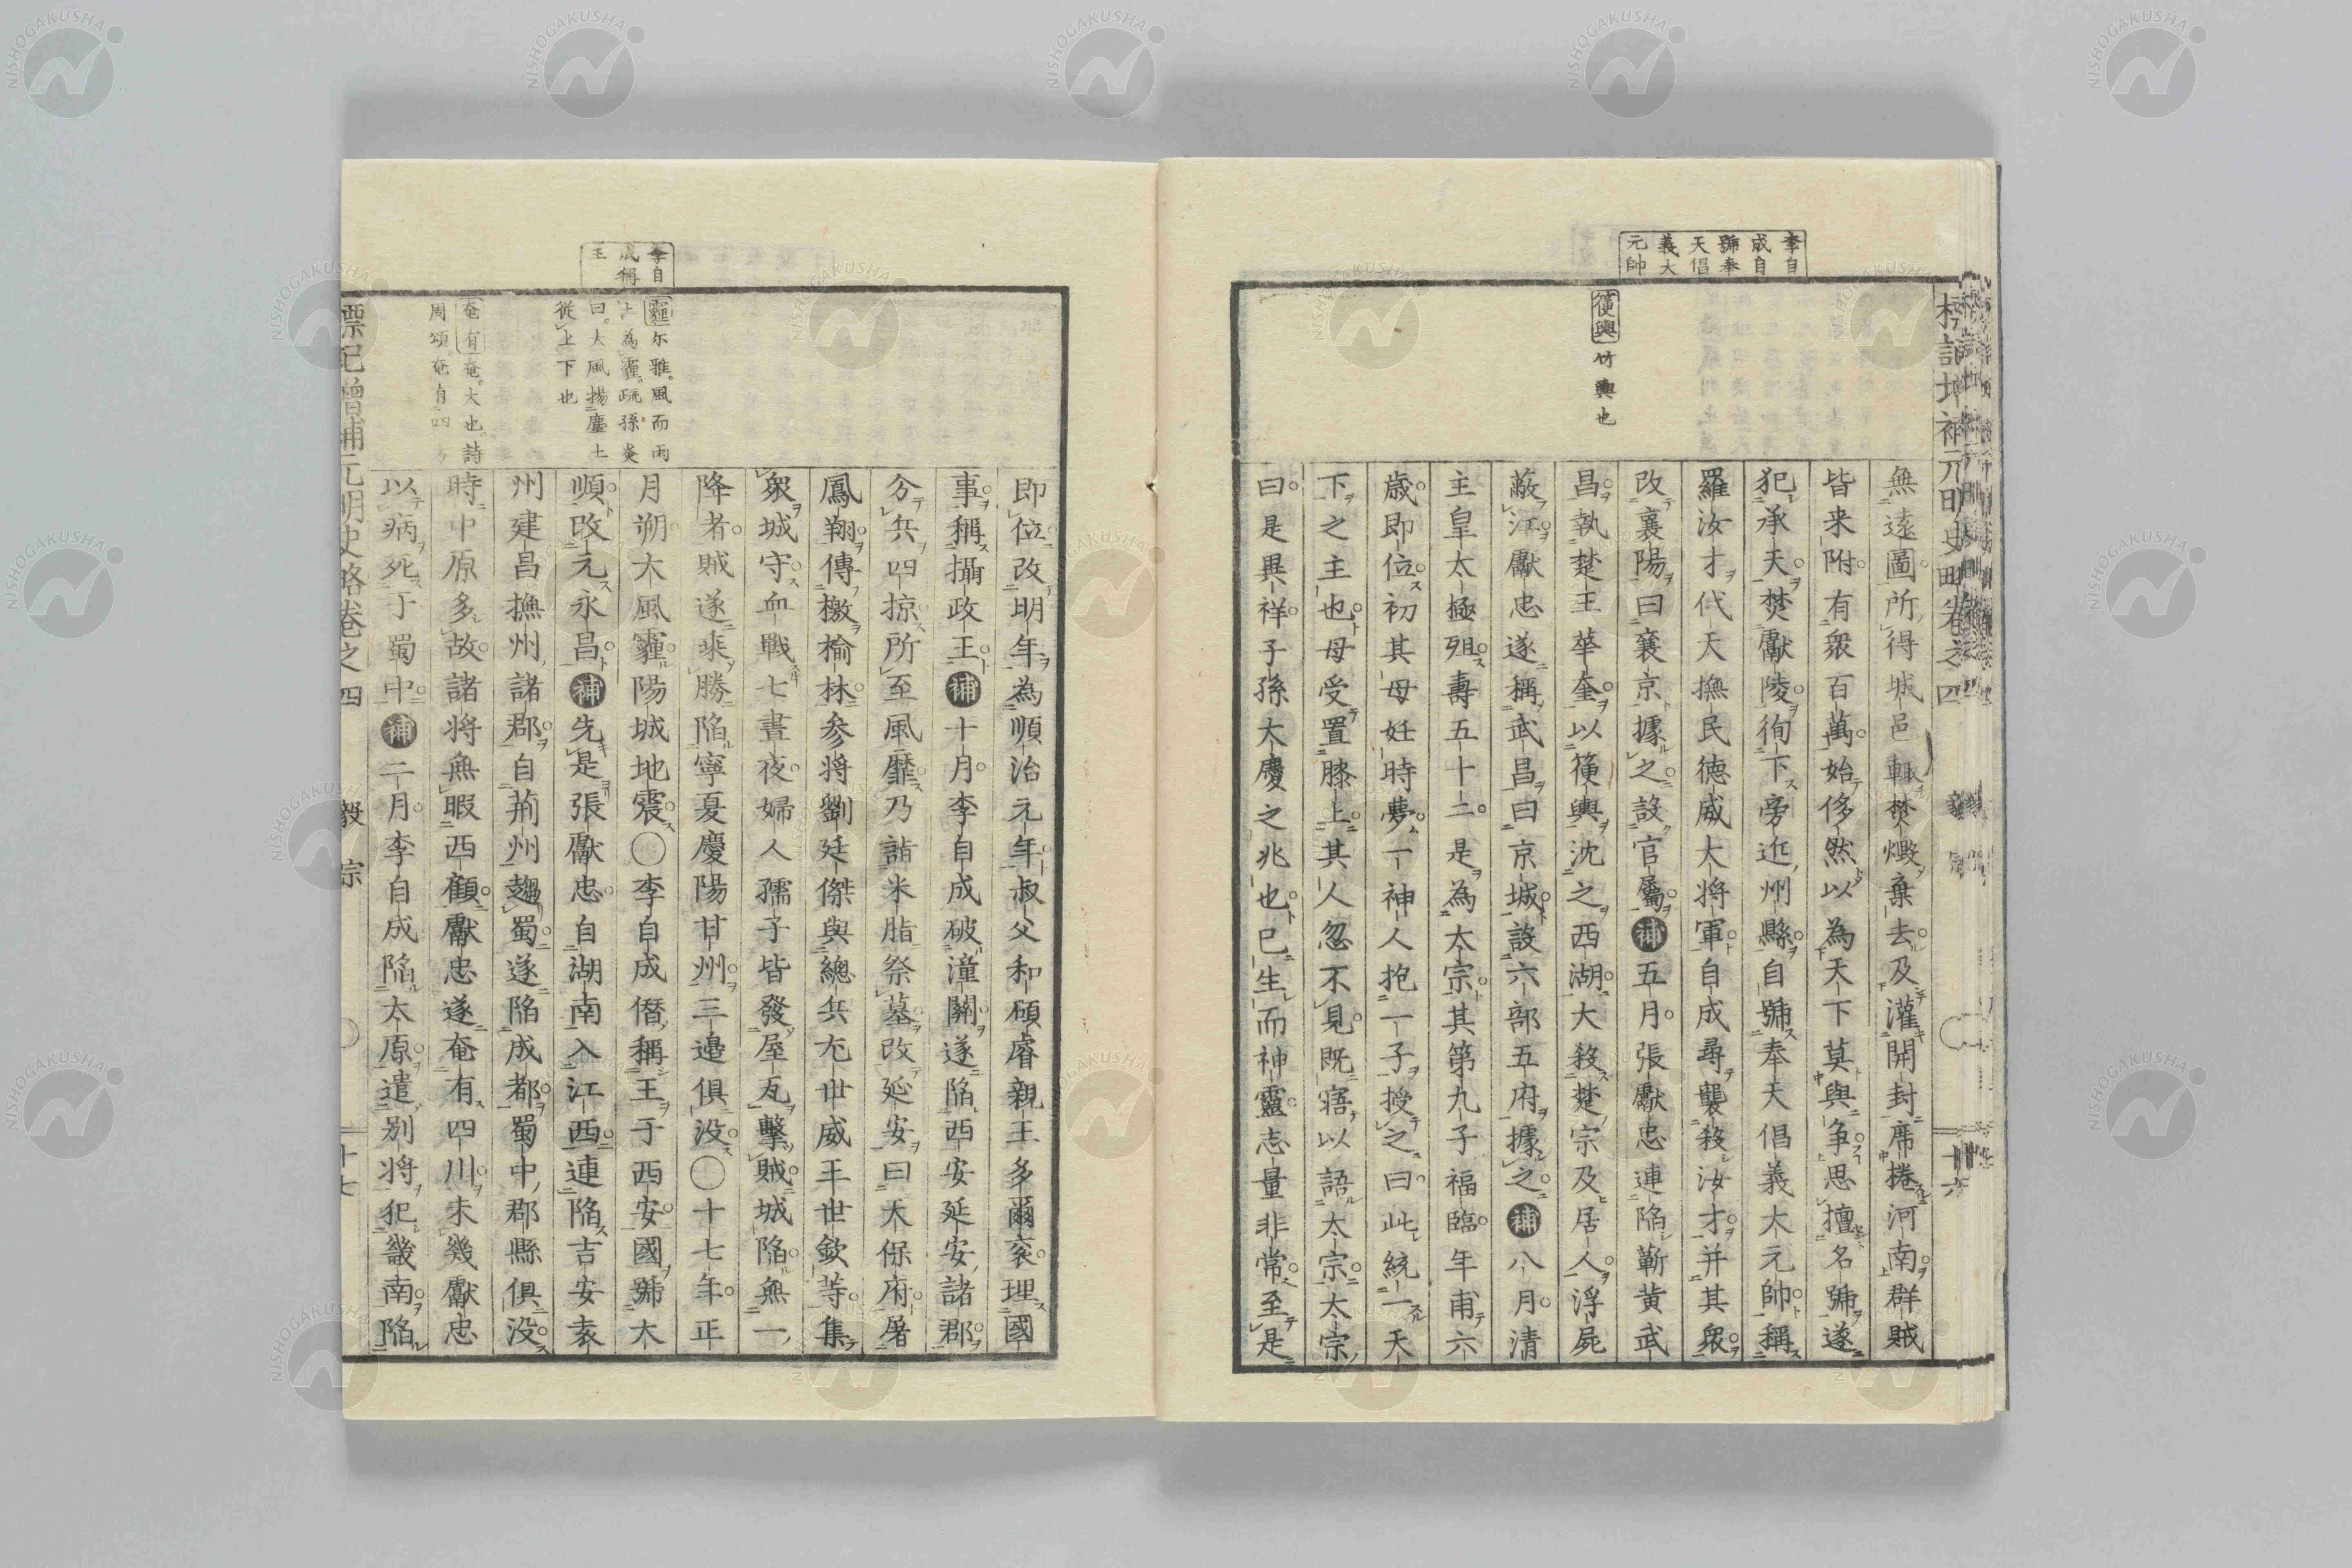 李自
成自
號奉
天倡
義大
元帥
篌輿竹輿也
無遠圖所得城邑輒焚燬棄去及灌開封席捲河南群賊
皆来附有衆百萬始侈然以為天下莫與争思擅名號遂
犯承天焚獻陵徇下旁近州縣自號奉天倡義大元帥稱
羅汝才代天撫民德威大将軍自成尋襲殺汝才并其衆
改襄陽曰襄京據之設官屬補五月張獻忠連陥蘄黄武
昌執楚王華奎以篌輿沈之西湖大殺楚宗及居人浮屍
蔽江獻忠遂稱武昌曰京城設六部五府據之補八月清
主皇太極殂壽五十二是為太宗其第九子福臨年甫六
歳即位初其母妊時夢一神人抱一子授之曰此統一天
下之主也母受置膝上其人忽不見既寤以語太宗太宗
曰是異祥子孫大慶之兆也已生而神靈志量非常至是
李自
成稱
王
霾尔雅風而雨
土為霾疏孫炎
曰大風揚塵土
従上下也
奄有奄大也詩
周頌奄有四方
即位改明年為順治元年叔父和碩睿親王多爾衮理國
事稱攝政王補十月李自成破潼關遂陥西安延安諸郡
分兵四掠所至風靡乃詣米脂祭墓改延安曰天保府屠
鳳翔傳檄楡林参将劉廷傑與總兵尤世威王世欽等集
衆城守血戰七晝夜婦人孺子皆發屋瓦擊賊城陥無一
降者賊遂乘勝陥寧夏慶陽甘州三邉俱没〇十七年正
月朔大風霾陽城地震〇李自成僭稱王于西安國號大
順改元永昌補先是張獻忠自湖南入江西連陥吉安袁
州建昌撫州諸郡自荊州趨蜀遂陥成都蜀中郡縣俱没
時中原多故諸将無暇西顧獻忠遂奄有四川未幾獻忠
以病死于蜀中補二月李自成陥太原遣别将犯畿南陥
標記增補元明史略巻之四 毅宗 十七